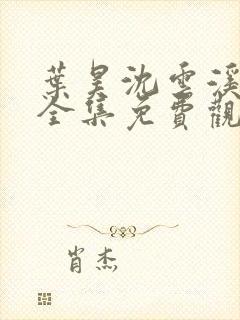 葉昊沈雲溪
全集免費觀
肖杰